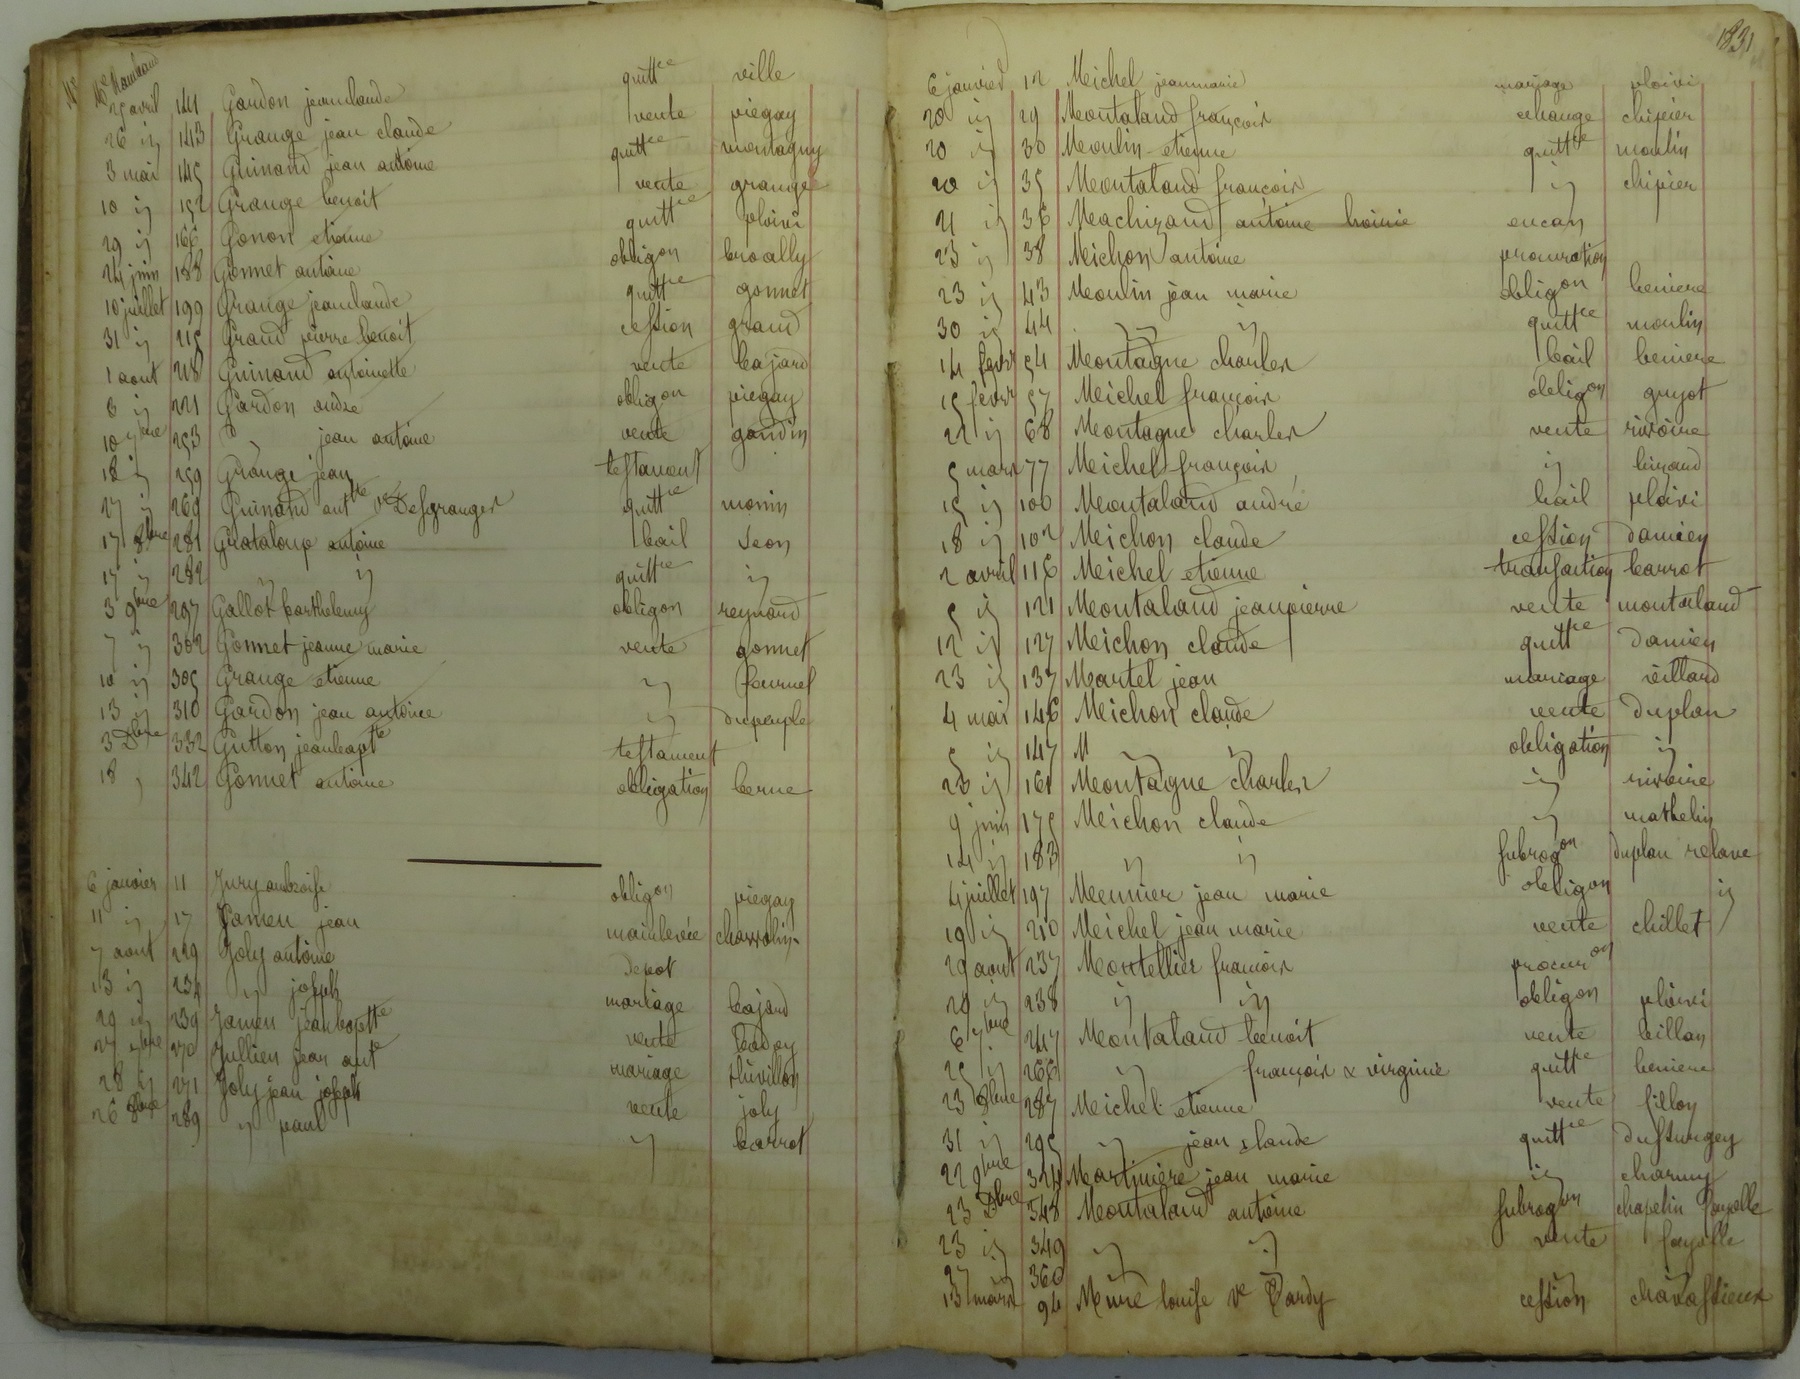 Me Rambaud
25 avril 141 Gardon jeanclaude quittce ville
26 id 143 Grange jean claude vente piegay
3 mai 145 Guinand jean antoine quittce montagny
10 id 152 Grange benoit vente grange
29 id 166 Gonon etienne quittce ploivi
24 juin 188 Gonnet antoine obligon broally
10 juillet 199 Grange jeanclaude quittce gonnet
31 id 215 Grand pierre benoit cession grand
1 aout 218 Guinand antoinette vente bajard
6 id 221 Gardon andre obligon piegay
10 7bre 253 " jean antoine vente gondin
18 id 259 Grange jean testament
27 id 269 Guinand antte ve Desgranges quittce monin
17 8bre 281 Grataloup antoine bail Seon
17 id 282 id id quittce id
3 9bre 297 Gallot barthelemy obligon reynaud
7 id 302 Gonnet jeanne marie vente gonnet
10 id 305 Grange etienne id fournel
13 id 310 Gardon jean antoine id dupeuple
3 Dbre 332 Gutton jeanbaptte testament
18 " 342 Gonnet antoine obligation berne
6 janvier 11 Jury ambroise obligon piegay
11 id 17 Jamen jean mainlevée
7 aout 229 Joly antoine Depot
13 id 234 id joseph mariage bajard
29 id 239 Jamen jeanbaptte vente badoy
27 7bre 270 Jullien jean ante mariage thivillon
28 id 271 Joly jean joseph vente joly
26 8bre 289 id paul id barrot
1831
6 janvier 12 Michel jeanmarie mariage ploivi
20 id 29 Montaland françois echange chipier
20 id 30 Moulin etienne quittce moulin
20 id 35 Montaland françois id chipier
21 id 36 Machizaud antoine hoirie encan
23 id 38 Michon antoine procuration
23 id 43 Moulin jean marie obligon beniere
30 id 44 id id quittce moulin
14 fevr 54 Montagne charles bail beniere
15 fevr 57 Michel françois obligon guyot
22 id 68 Montagne charles vente rivoire
5 mars 77 Michel françois id
15 id 100 Montaland andré bail ploivi
18 id 102 Michon claude cession damien
2 avril 116 Michel etienne transaction barrot
5 id 121 Montaland jeanpierre vente montaland
12 id 127 Michon claude quittce damien
23 id 137 Martel jean mariage villard
4 mai 146 Michon claude vente duplan
5 id 147 M id id obligation id
28 id 161 Montagne charles id rivoire
9 juin 175 Michon claude id mathelin
14 id 183 id id subrogon duplan relave
4 juillet 197 Meunier jean marie obligon id
19 id 210 Michel jean marie vente chillet
29 aout 237 Montellier françois procuron
29 id 238 id id obligon ploivi
6 7bre 247 Montaland benoit vente billon
25 id 266 id françois & virginie quittce beniere
23 8bre 287 Michel etienne vente fillon
31 id 295 id jean claude quittce dussurgey
22 9bre 324 Martiniere jean marie id charmy
23 Dbre 348 Montaland antoine subrogon chapelin fayolle
23 id 349 id id vente fayolle
27 360
13 mars 94 Mure louise ve Dardy cession chavassieux